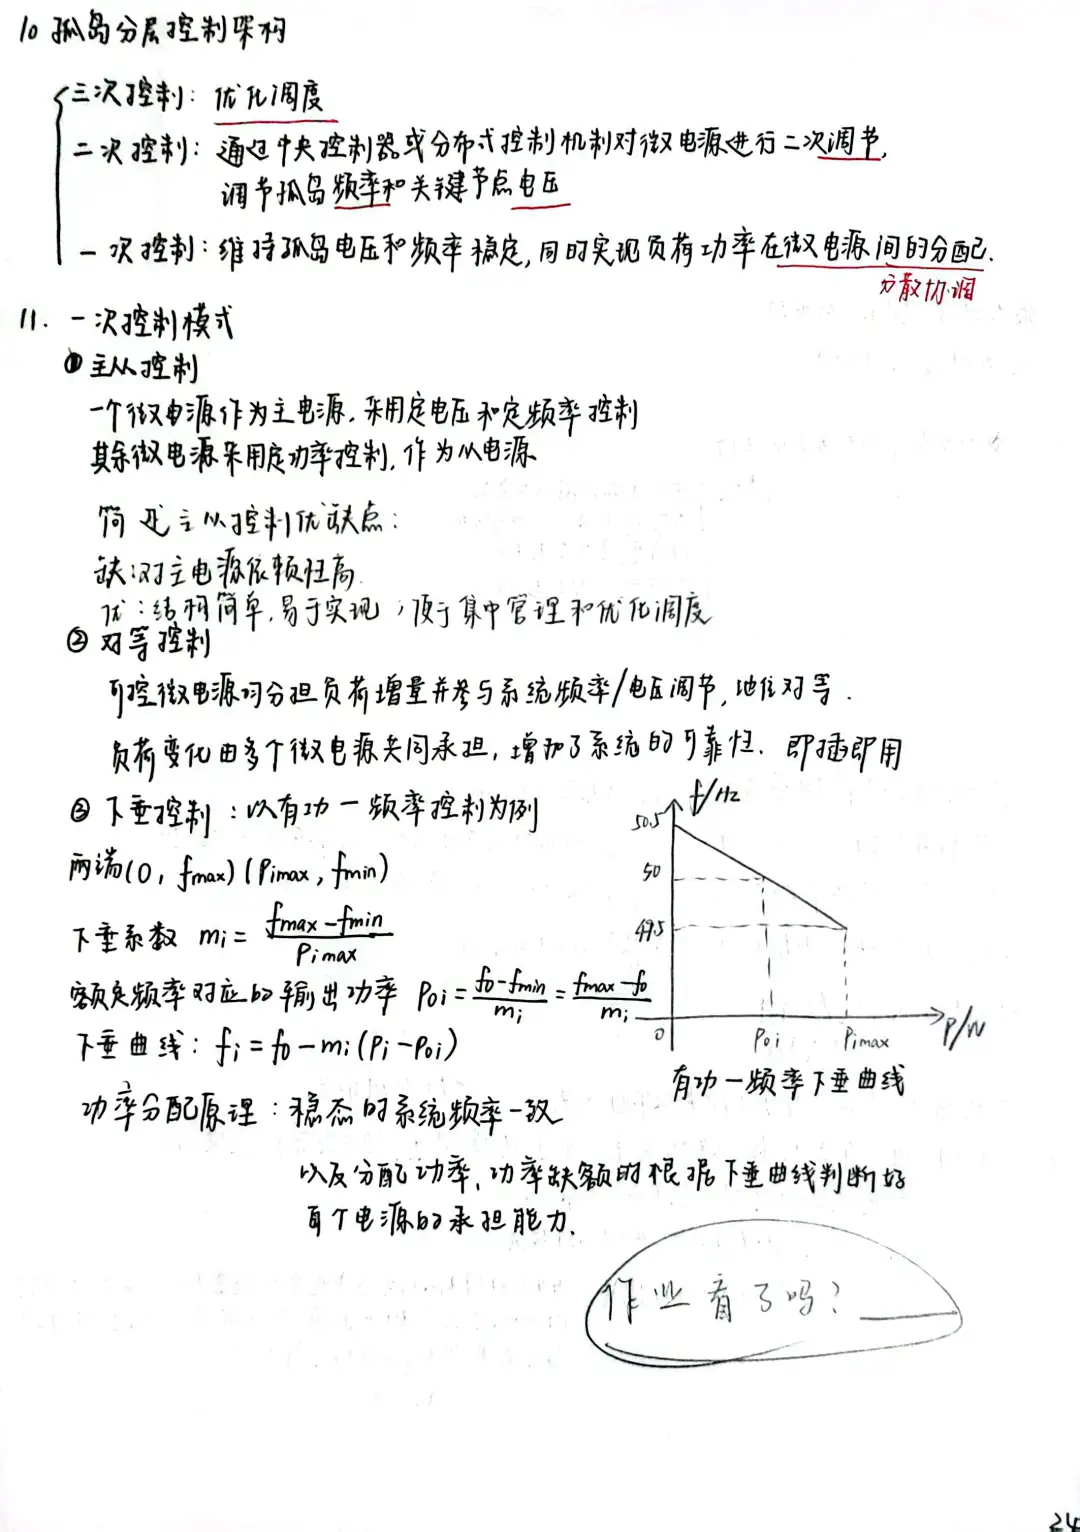 10 孤岛分层控制架构
三次控制: 优化调度
二次控制: 通过中央控制器或分布式控制机制对微电源进行二次调节,
调节孤岛频率和关键节点电压
一次控制: 维持孤岛电压和频率稳定, 同时实现负荷功率在微电源间的分配.
分散协调
11. 一次控制模式
① 主从控制
一个微电源作为主电源, 采用定电压和定频率控制
其余微电源采用定功率控制, 作为从电源
简述主从控制优缺点:
缺:对主电源依赖性高.
优:结构简单,易于实现;便于集中管理和优化调度
② 对等控制
可控微电源均分担负荷增量并参与系统频率/电压调节, 地位对等.
负荷变化由多个微电源共同承担, 增加了系统的可靠性. 即插即用
③ 下垂控制: 以有功一频率控制为例
两端(0, fmax) (Pimax, fmin)
下垂系数 mi = (fmax-fmin)/Pimax
额定频率对应的输出功率 Poi = (fo-fmin)/mi = (fmax-fo)/mi
下垂曲线: fi = fo-mi(Pi-Poi)
f/Hz
50.5
50
49.5
0
Poi
Pimax
P/W
有功一频率下垂曲线
功率分配原理: 稳态时系统频率一致
以及分配功率, 功率缺额时根据下垂曲线判断好
每个电源的承担能力.
作业看了吗?
24